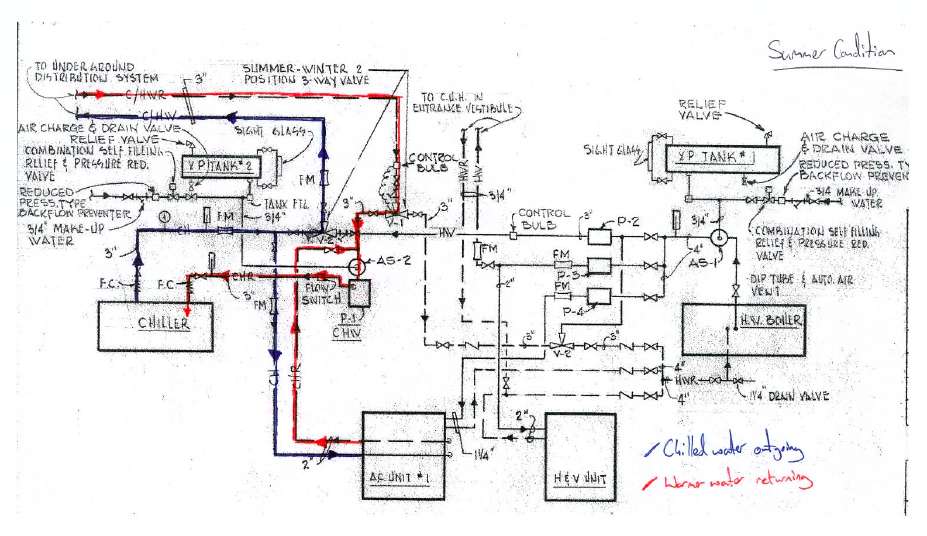 Summer Condition
TO UNDERGROUND
DISTRIBUTION SYSTEM
3"
SUMMER-WINTER 2
POSITION 3-WAY VALVE
C/HWR
C/HW
TO C.U.H. IN
ENTRANCE VESTIBULE
RELIEF
VALVE
AIR CHARGE & DRAIN VALVE
RELIEF VALVE
COMBINATION SELF FILLING
RELIEF & PRESSURE RED.
VALVE
SIGHT GLASS
XP TANK #2
CONTROL
BULB
FM
HWR
HW
3/4"
SIGHT GLASS
XP TANK #1
AIR CHARGE
& DRAIN VALVE
REDUCED PRESS. TY
BACKFLOW PREVEN
REDUCED
PRESS. TYPE
BACKFLOW PREVENTER
3/4" MAKE-UP
WATER
TANK FTG.
3/4"
3"
V-1
3"
CONTROL
BULB
3"
P-2
3/4"
3/4 MAKE-UP
WATER
COMBINATION SELF FILLING
RELIEF & PRESSURE RED.
VALVE
FM
CH
V-2
HW
4"
AS-1
3"
AS-2
FM
FM
P-3
DIP TUBE & AUTO. AIR
VENT
F.C.
F.C.
CHR
3"
FLOW
SWITCH
2"
FM
P-4
FM
P-1
CHW
CHILLER
H.W. BOILER
CH
CHR
3"
V-2
3"
4"
HWR
4"
1 1/4" DRAIN VALVE
2"
1 1/4"
2"
AC UNIT #1
H&V UNIT
Chilled water outgoing
Warmer water returning